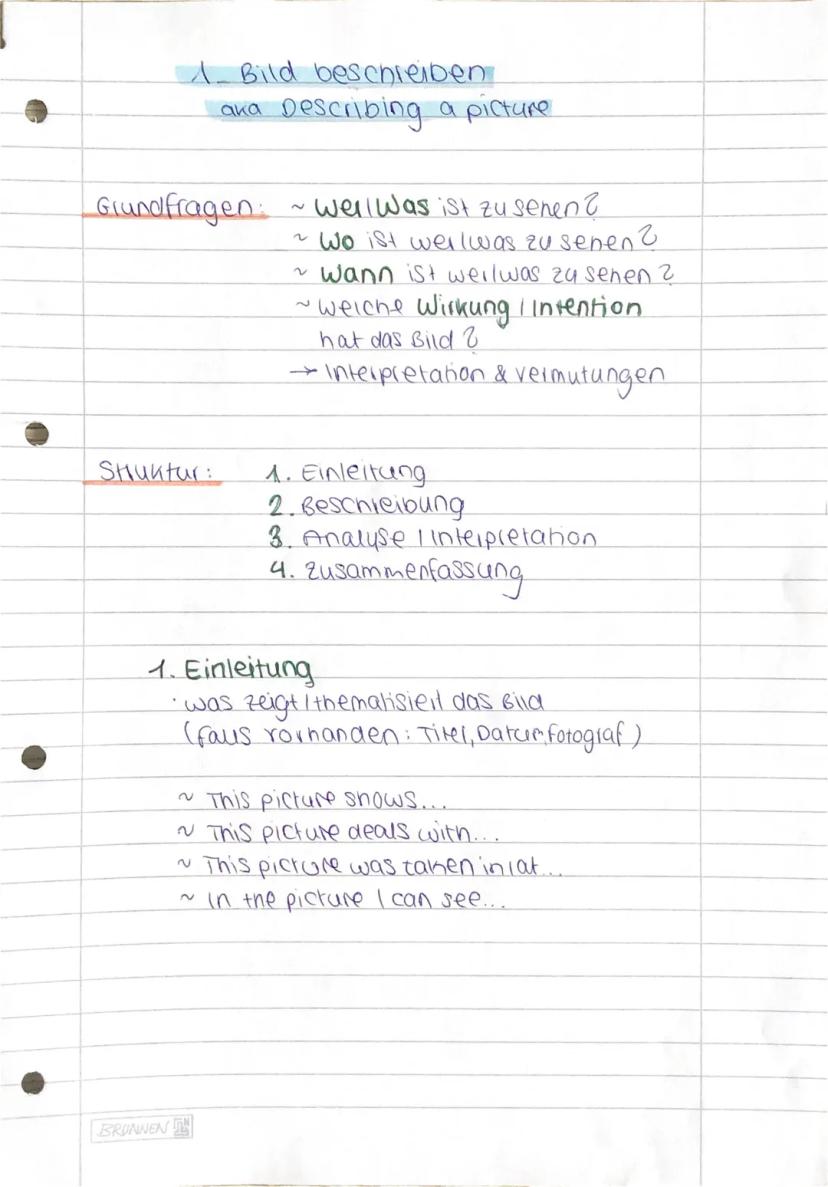 1_ Bild beschreiben
aka Describing a picture
Grundfragen: ~ Wer/Was ist zu sehen?
~ Wo ist wer/was zu sehen?
~ Wann ist wer/was zu sehen?
~ Welche Wirkung / Intention
hat das Bild?
→ Interpretation & Vermutungen
Struktur: 1. Einleitung
2. Beschreibung
3. Analyse / Interpretation
4. Zusammenfassung
1. Einleitung
· was zeigt / thematisiert das Bild
(falls vorhanden: Titel, Datum, Fotograf)
~ This picture shows...
~ This picture deals with...
~ This picture was taken in/at...
~ In the picture I can see...
BRUNNEN